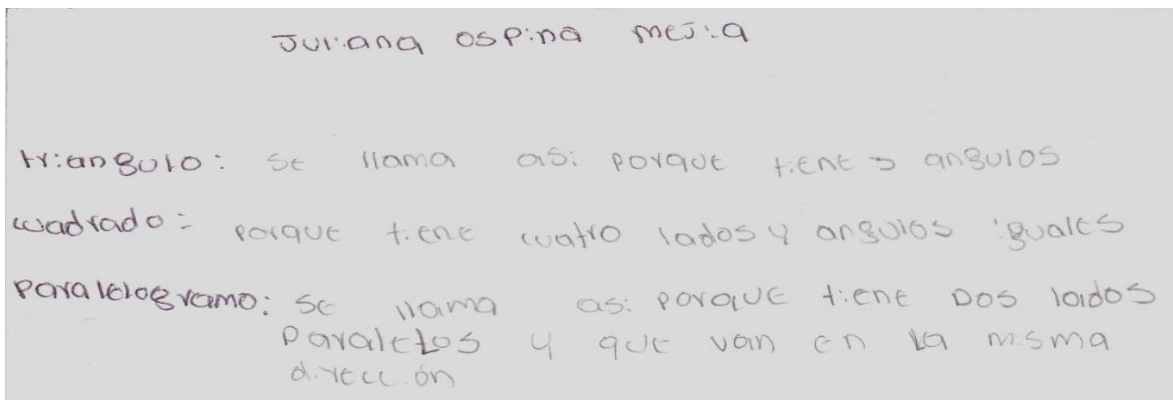 Juliana ospina mejia
triangulo: se llama asi porque tiene 3 angulos
cuadrado: porque tiene cuatro lados y angulos iguales
Paralelogramo: se llama asi porque tiene Dos lados
Paralelos y que van en la misma
dirección